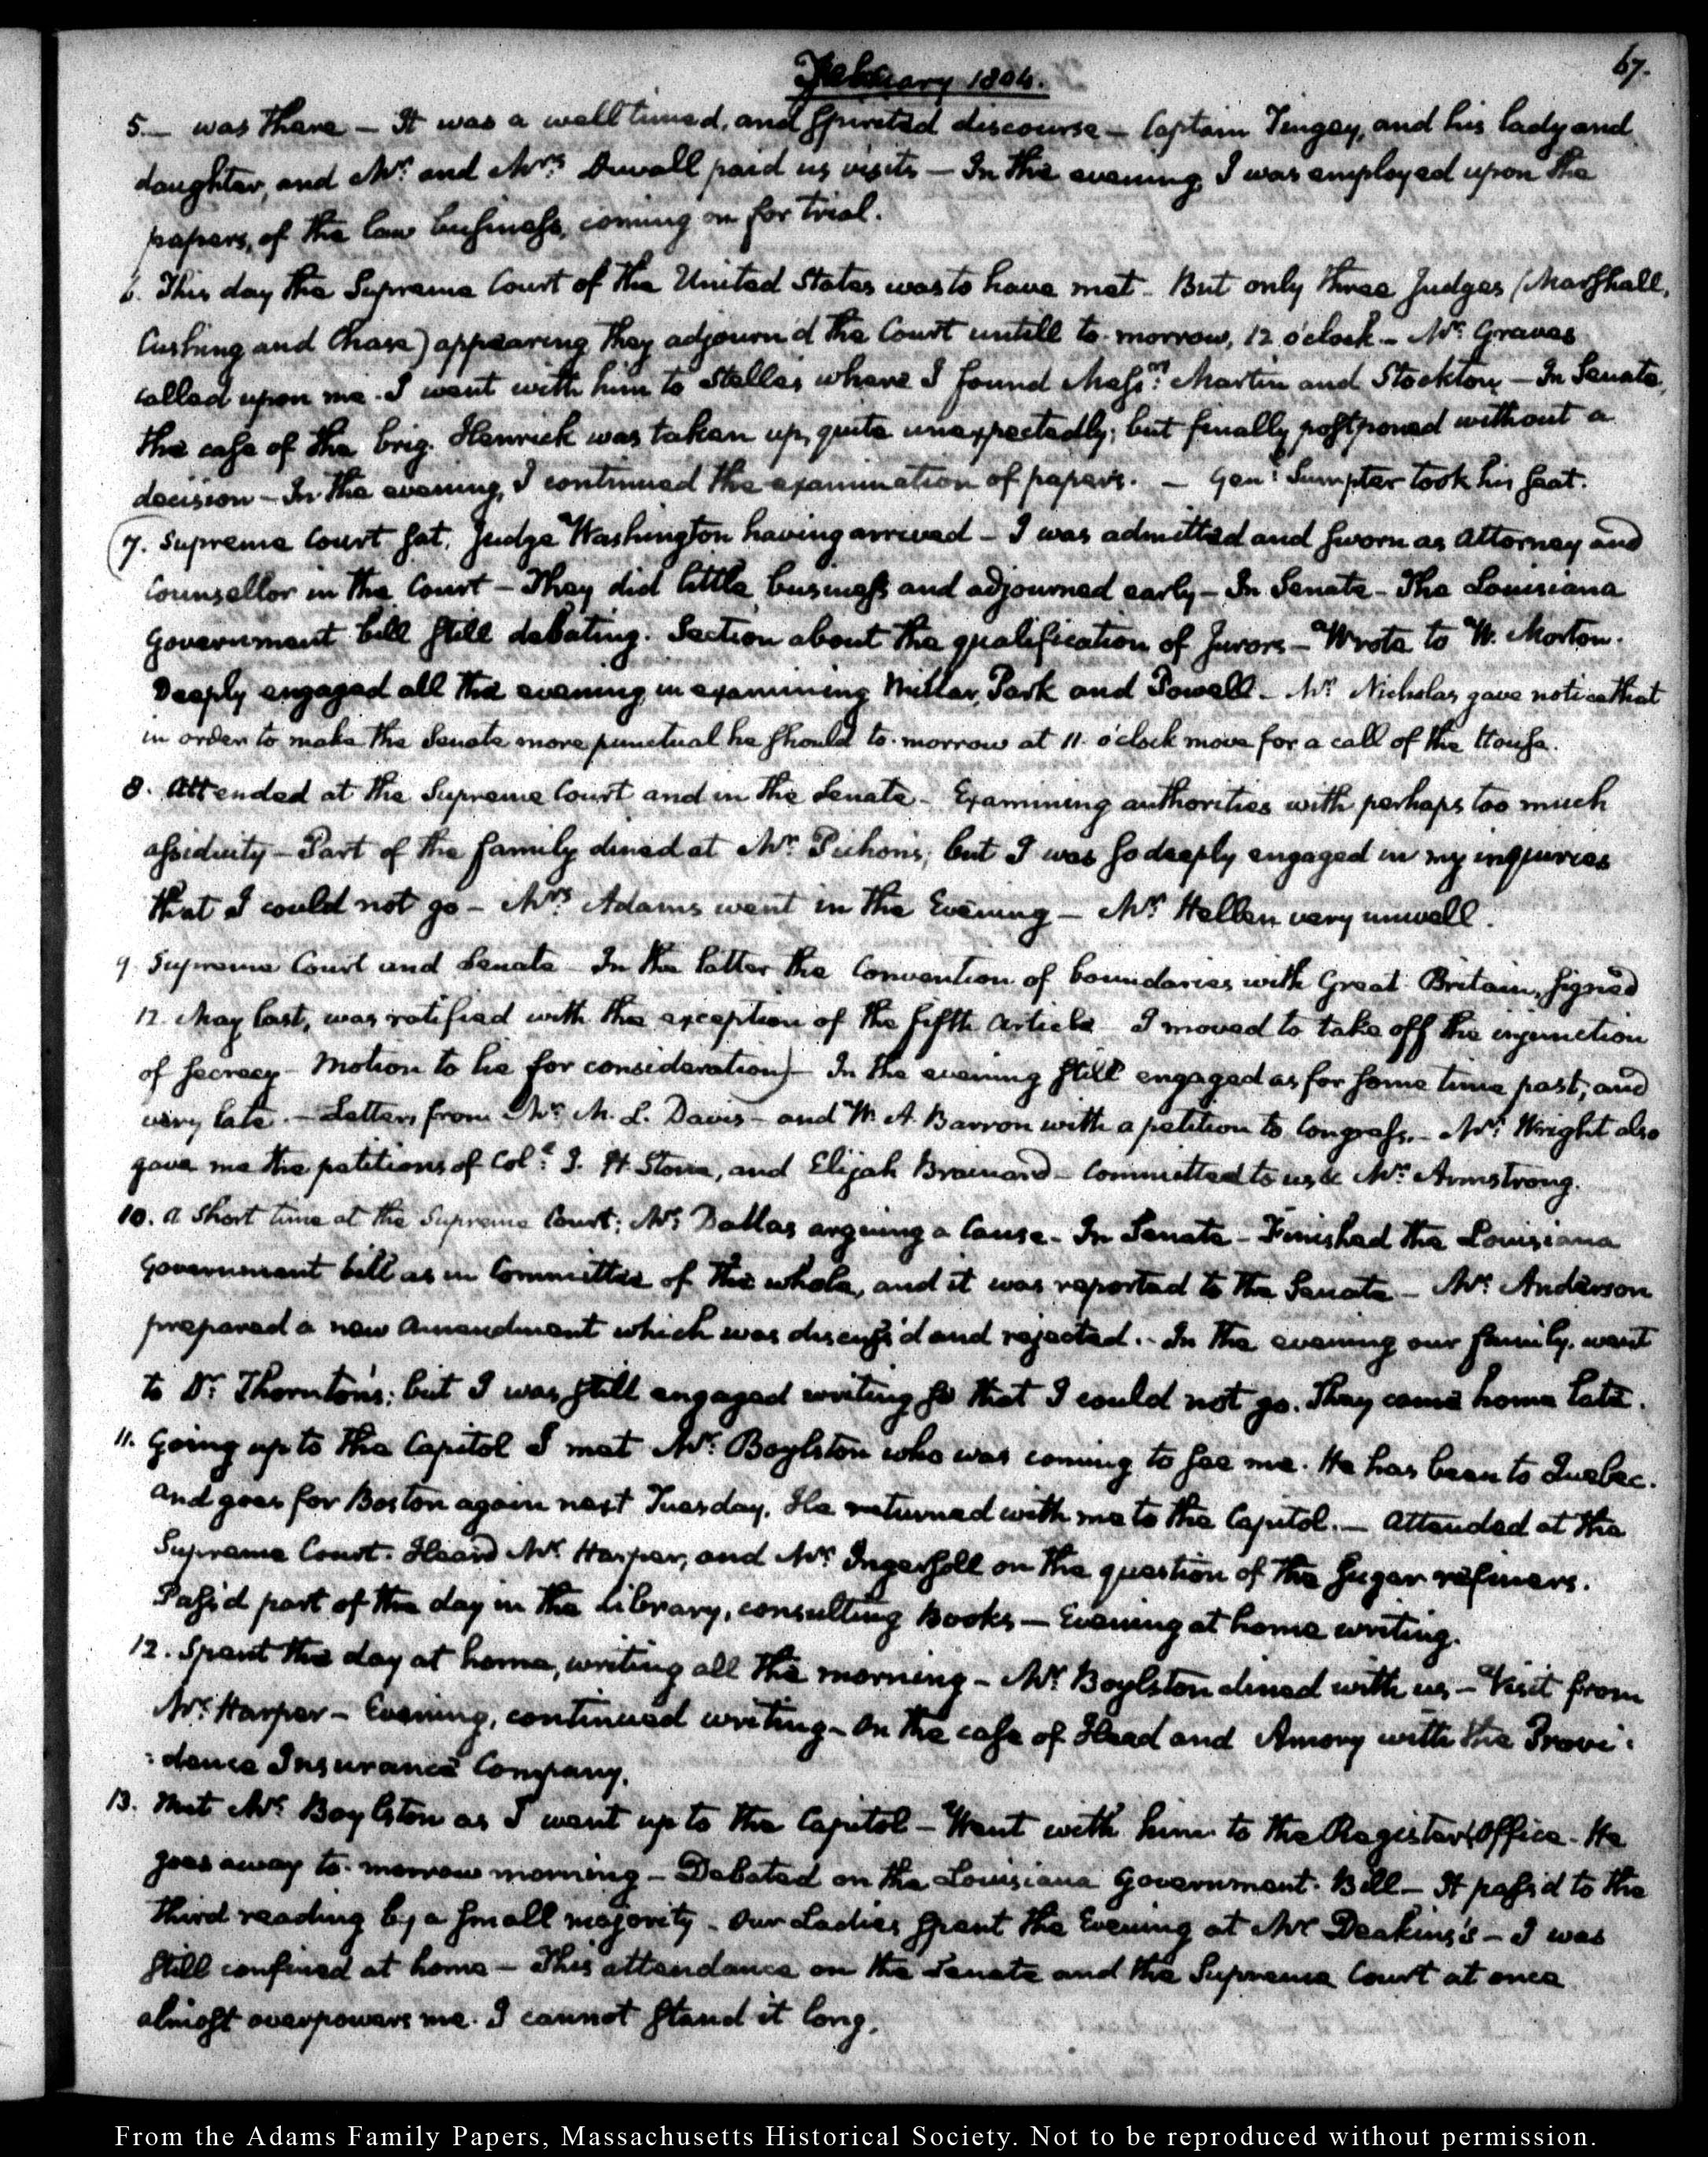 67.
February 1804.
5.— was there — It was a well timed, and spirited discourse — Captain Tingey, and his lady and
daughter, and Mr. and Mrs. Duvall paid us visits — In the evening I was employed upon the
papers, of the law business, coming on for trial.
6. This day the Supreme Court of the United States was to have met — But only three Judges (Marshall,
Cushing and Chase) appearing they adjourn'd the Court untill to-morrow, 12 o'clock — Mr. Graves
called upon me. I went with him to Stelle's where I found Messrs. Martin and Stockton — In Senate,
the case of the brig. Henrick was taken up, quite unexpectedly; but finally postponed without a
decision — In the evening, I continued the examination of papers. — Genl. Sumpter took his seat.
7. Supreme Court sat, Judge Washington having arrived — I was admitted and sworn as Attorney and
Counsellor in the Court — They did little business and adjourned early — In Senate — The Louisiana
Government bill still debating. Section about the qualification of Jurors — Wrote to W. Morton.
Deeply engaged all the evening in examining Millar, Park and Powell — Mr. Nicholas gave notice that
in order to make the Senate more punctual he should to-morrow at 11 o'clock move for a call of the House.
8. Attended at the Supreme Court and in the Senate — Examining authorities with perhaps too much
assiduity — Part of the family dined at Mr. Pichon's; but I was so deeply engaged in my inquiries
that I could not go — Mrs. Adams went in the Evening — Mr. Hellen very unwell.
9. Supreme Court and Senate — In the latter the Convention of boundaries with Great Britain, signed
12. May last, was ratified with the exception of the fifth Article — I moved to take off the injunction
of secrecy — Motion to lie for consideration) — In the evening still engaged as for some time past, and
very late. — Letters from Mr. M. L. Davis — and W. A. Barron with a petition to Congress. — Mr. Wright also
gave me the petitions of Coll. J. H. Stone, and Elijah Brainard — Committed to us & Mr. Armstrong.
10. A short time at the Supreme Court; Mr. Dallas arguing a Cause — In Senate — Finished the Louisiana
Government bill as in Committee of the whole, and it was reported to the Senate — Mr. Anderson
prepared a new Amendment which was discuss'd and rejected. — In the evening our family, went
to Dr. Thornton's; but I was still engaged writing so that I could not go. They came home late.
11. Going up to the Capitol I met Mr. Boylston who was coming to see me. He has been to Quebec.
and goes for Boston again next Tuesday. He returned with me to the Capitol. — Attended at the
Supreme Court. Heard Mr. Harper, and Mr. Ingersoll on the question of the Sugar refiners.
Pass'd part of the day in the library, consulting Books — Evening at home writing.
12. Spent the day at home, writing all the morning — Mr. Boylston dined with us — Visit from
Mr. Harper — Evening, continued writing — On the case of Head and Amory with the Provi-
:dence Insurance Company.
13. Met Mr. Boylston as I went up to the Capitol — Went with him to the Register's Office — He
goes away to-morrow morning — Debated on the Louisiana Government Bill — It pass'd to the
third reading by a small majority — Our Ladies spent the Evening at Mr. Deakins's — I was
still confined at home — This attendance on the Senate and the Supreme Court at once
almost overpowers me. I cannot stand it long.
From the Adams Family Papers, Massachusetts Historical Society. Not to be reproduced without permission.